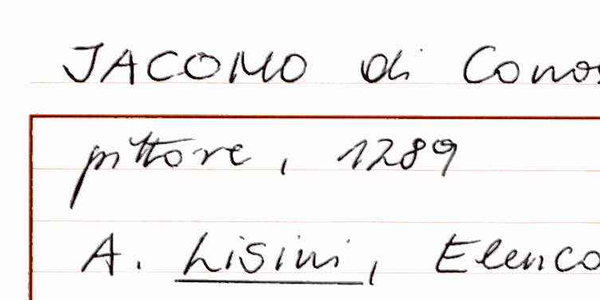 JACOMO di Conos
pittore, 1289
A. Lisini, Elenco